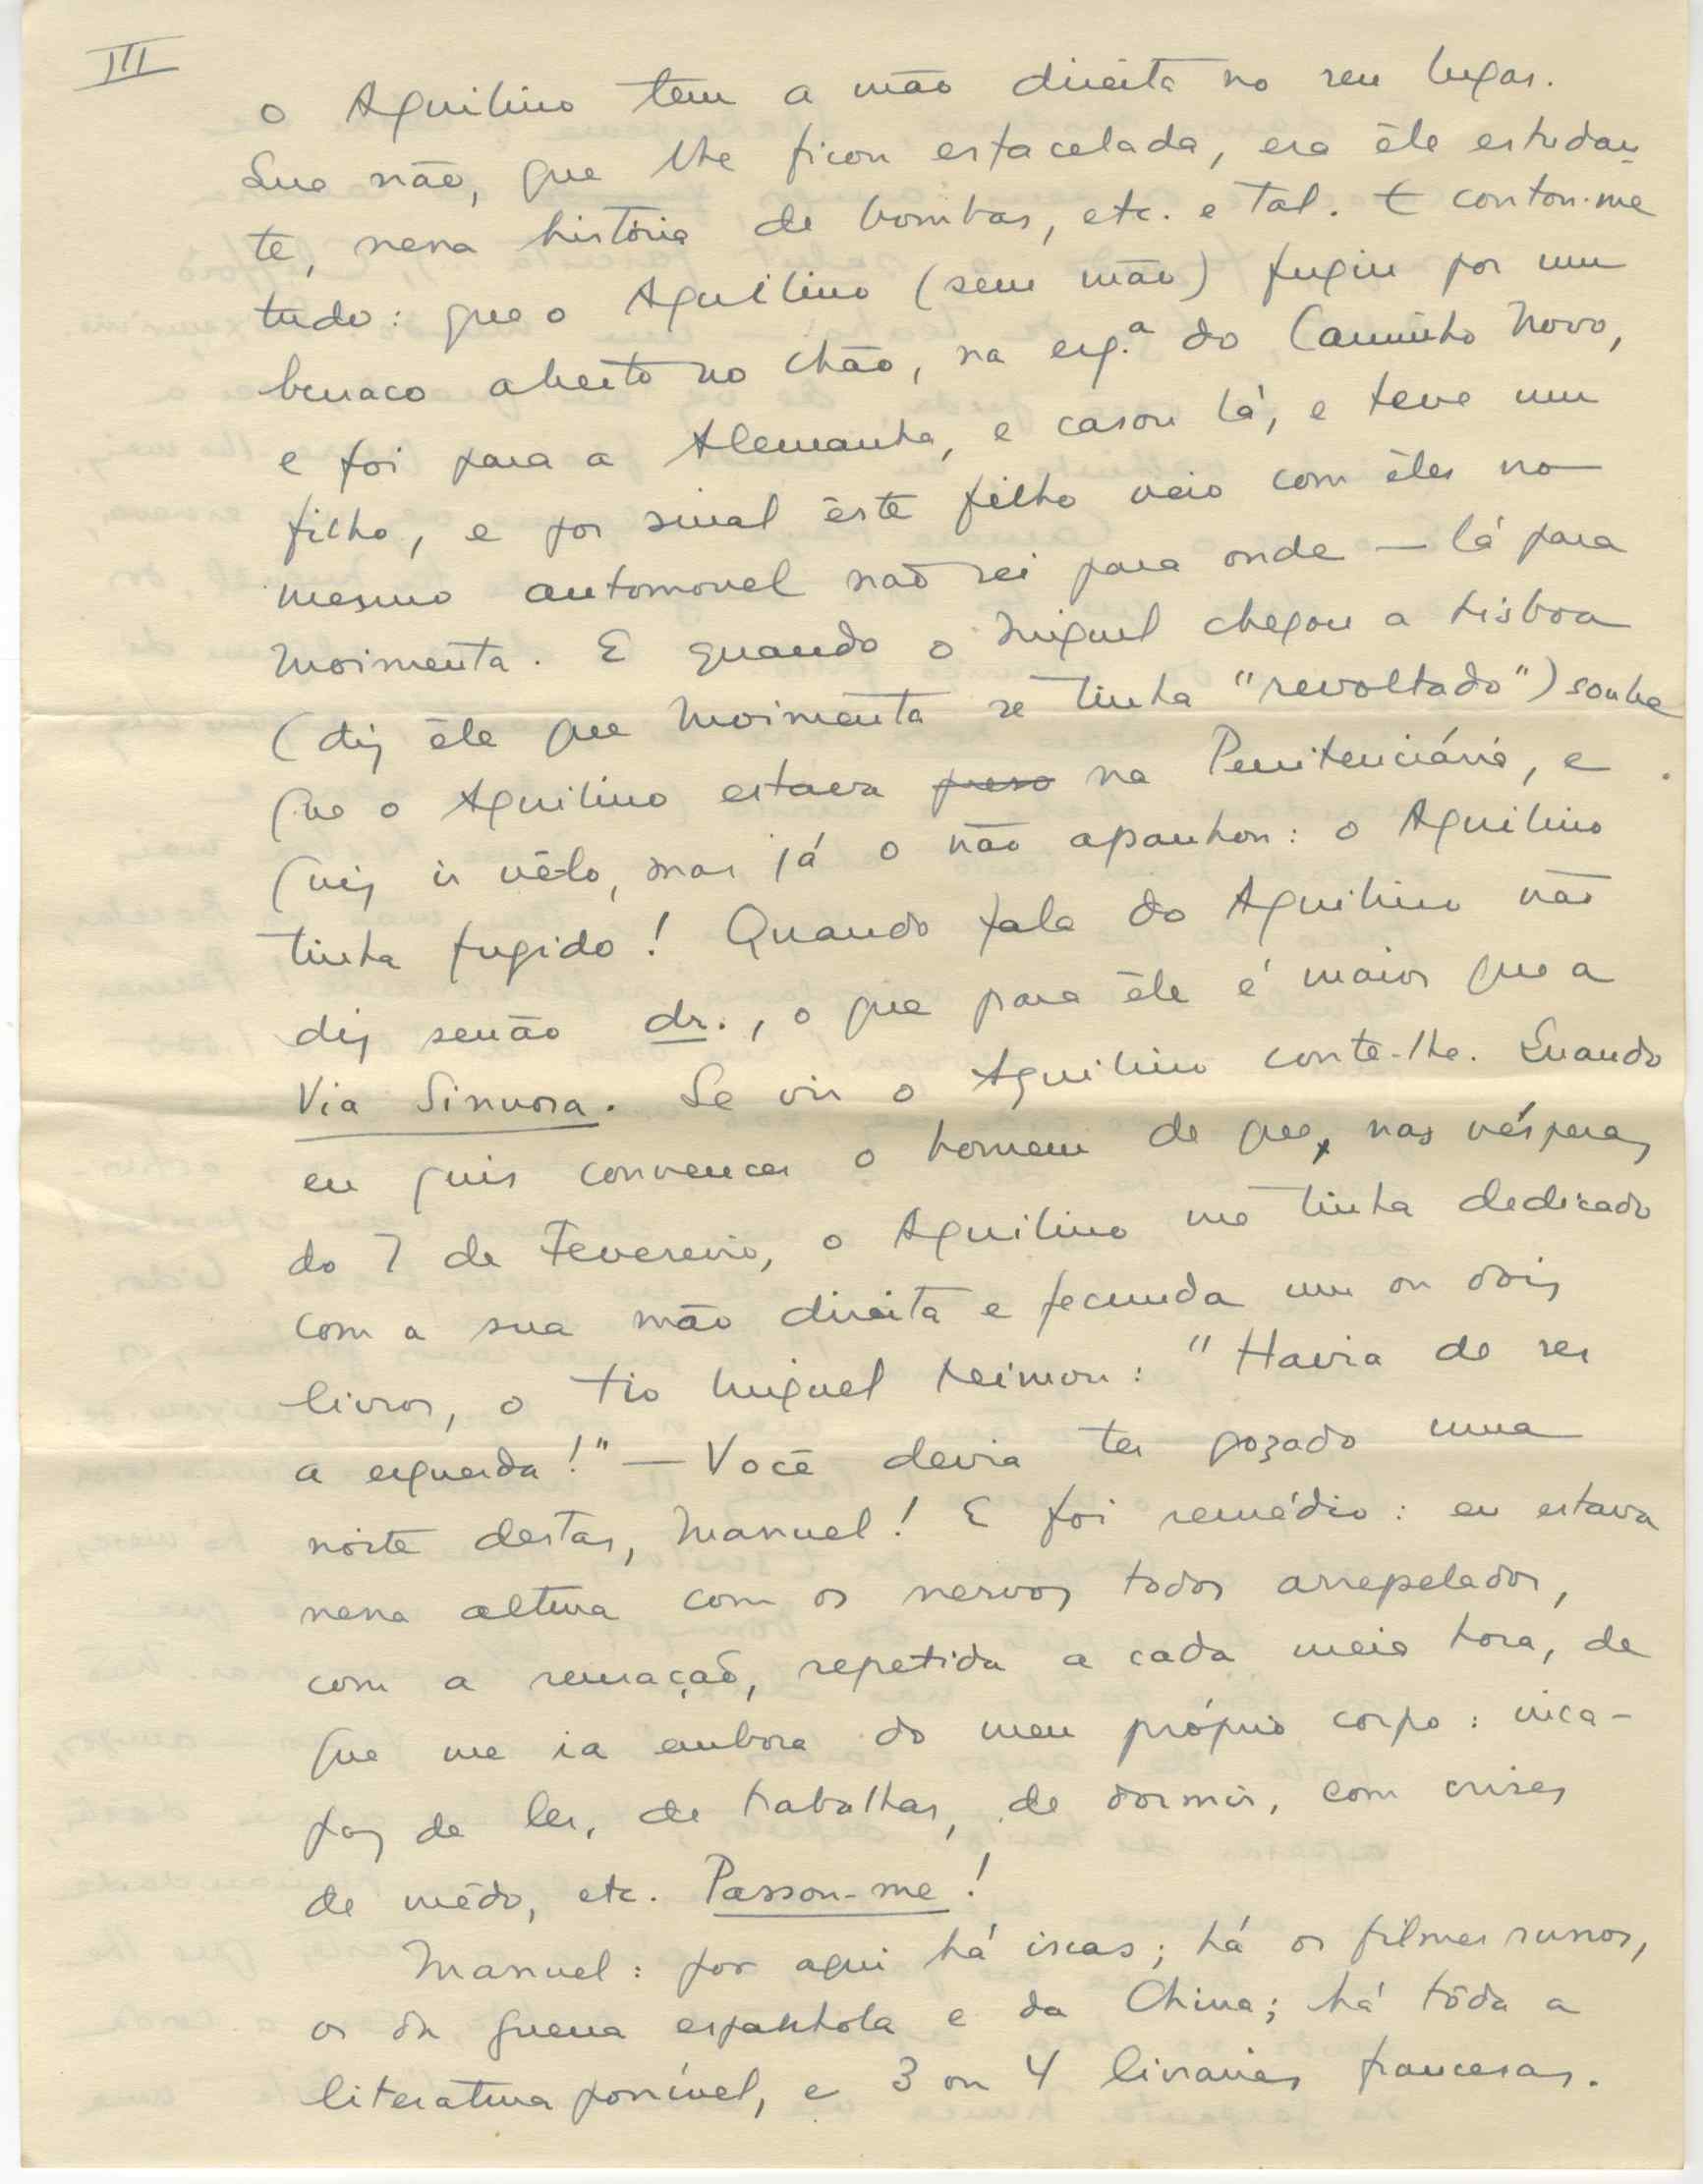 III
o Aquilino tem a mão direita no seu lugar.
Que não, que lhe ficou esfacelada, era êle estudan-
te, nessa história de bombas, etc. e tal. E contou-me
tudo: que o Aquilino (sem mão) fugiu por um
buraco aberto no chão, na esq.ª do Caminho Novo,
e foi para a Alemanha, e casou lá, e teve um
filho, e por sinal êste filho veio com êles no
mesmo automovel não sei para onde — lá para
Moimenta. E quando o Miguel chegou a Lisboa
(diz êle que Moimenta se tinha "revoltado") soube
que o Aquilino estava preso na Penitenciária, e
quiz ir vê-lo, mas já o não apanhou: o Aquilino
tinha fugido! Quando fala do Aquilino não
diz senão dr., o que para êle é maior que a
Via Sinuosa. Se vir o Aquilino conte-lhe. Quando
eu quis convencer o homem de que, nas vésperas
do 7 de Fevereiro, o Aquilino me tinha dedicado
com a sua mão direita e fecunda um ou dois
livros, o tio Miguel teimou: "Havia de ser
a esquerda!" — Você devia ter gozado uma
noite destas, Manuel! E foi remédio: eu estava
nessa altura com os nervos todos arrepelados,
com a sensação, repetida a cada meia hora, de
que me ia embora do meu próprio corpo: inca-
paz de ler, de trabalhar, de dormir, com crises
de mêdo, etc. Passou-me!
Manuel: por aqui há iscas; há os filmes russos,
os da guerra espanhola e da China; há tôda a
literatura possível, e 3 ou 4 livrarias francesas.